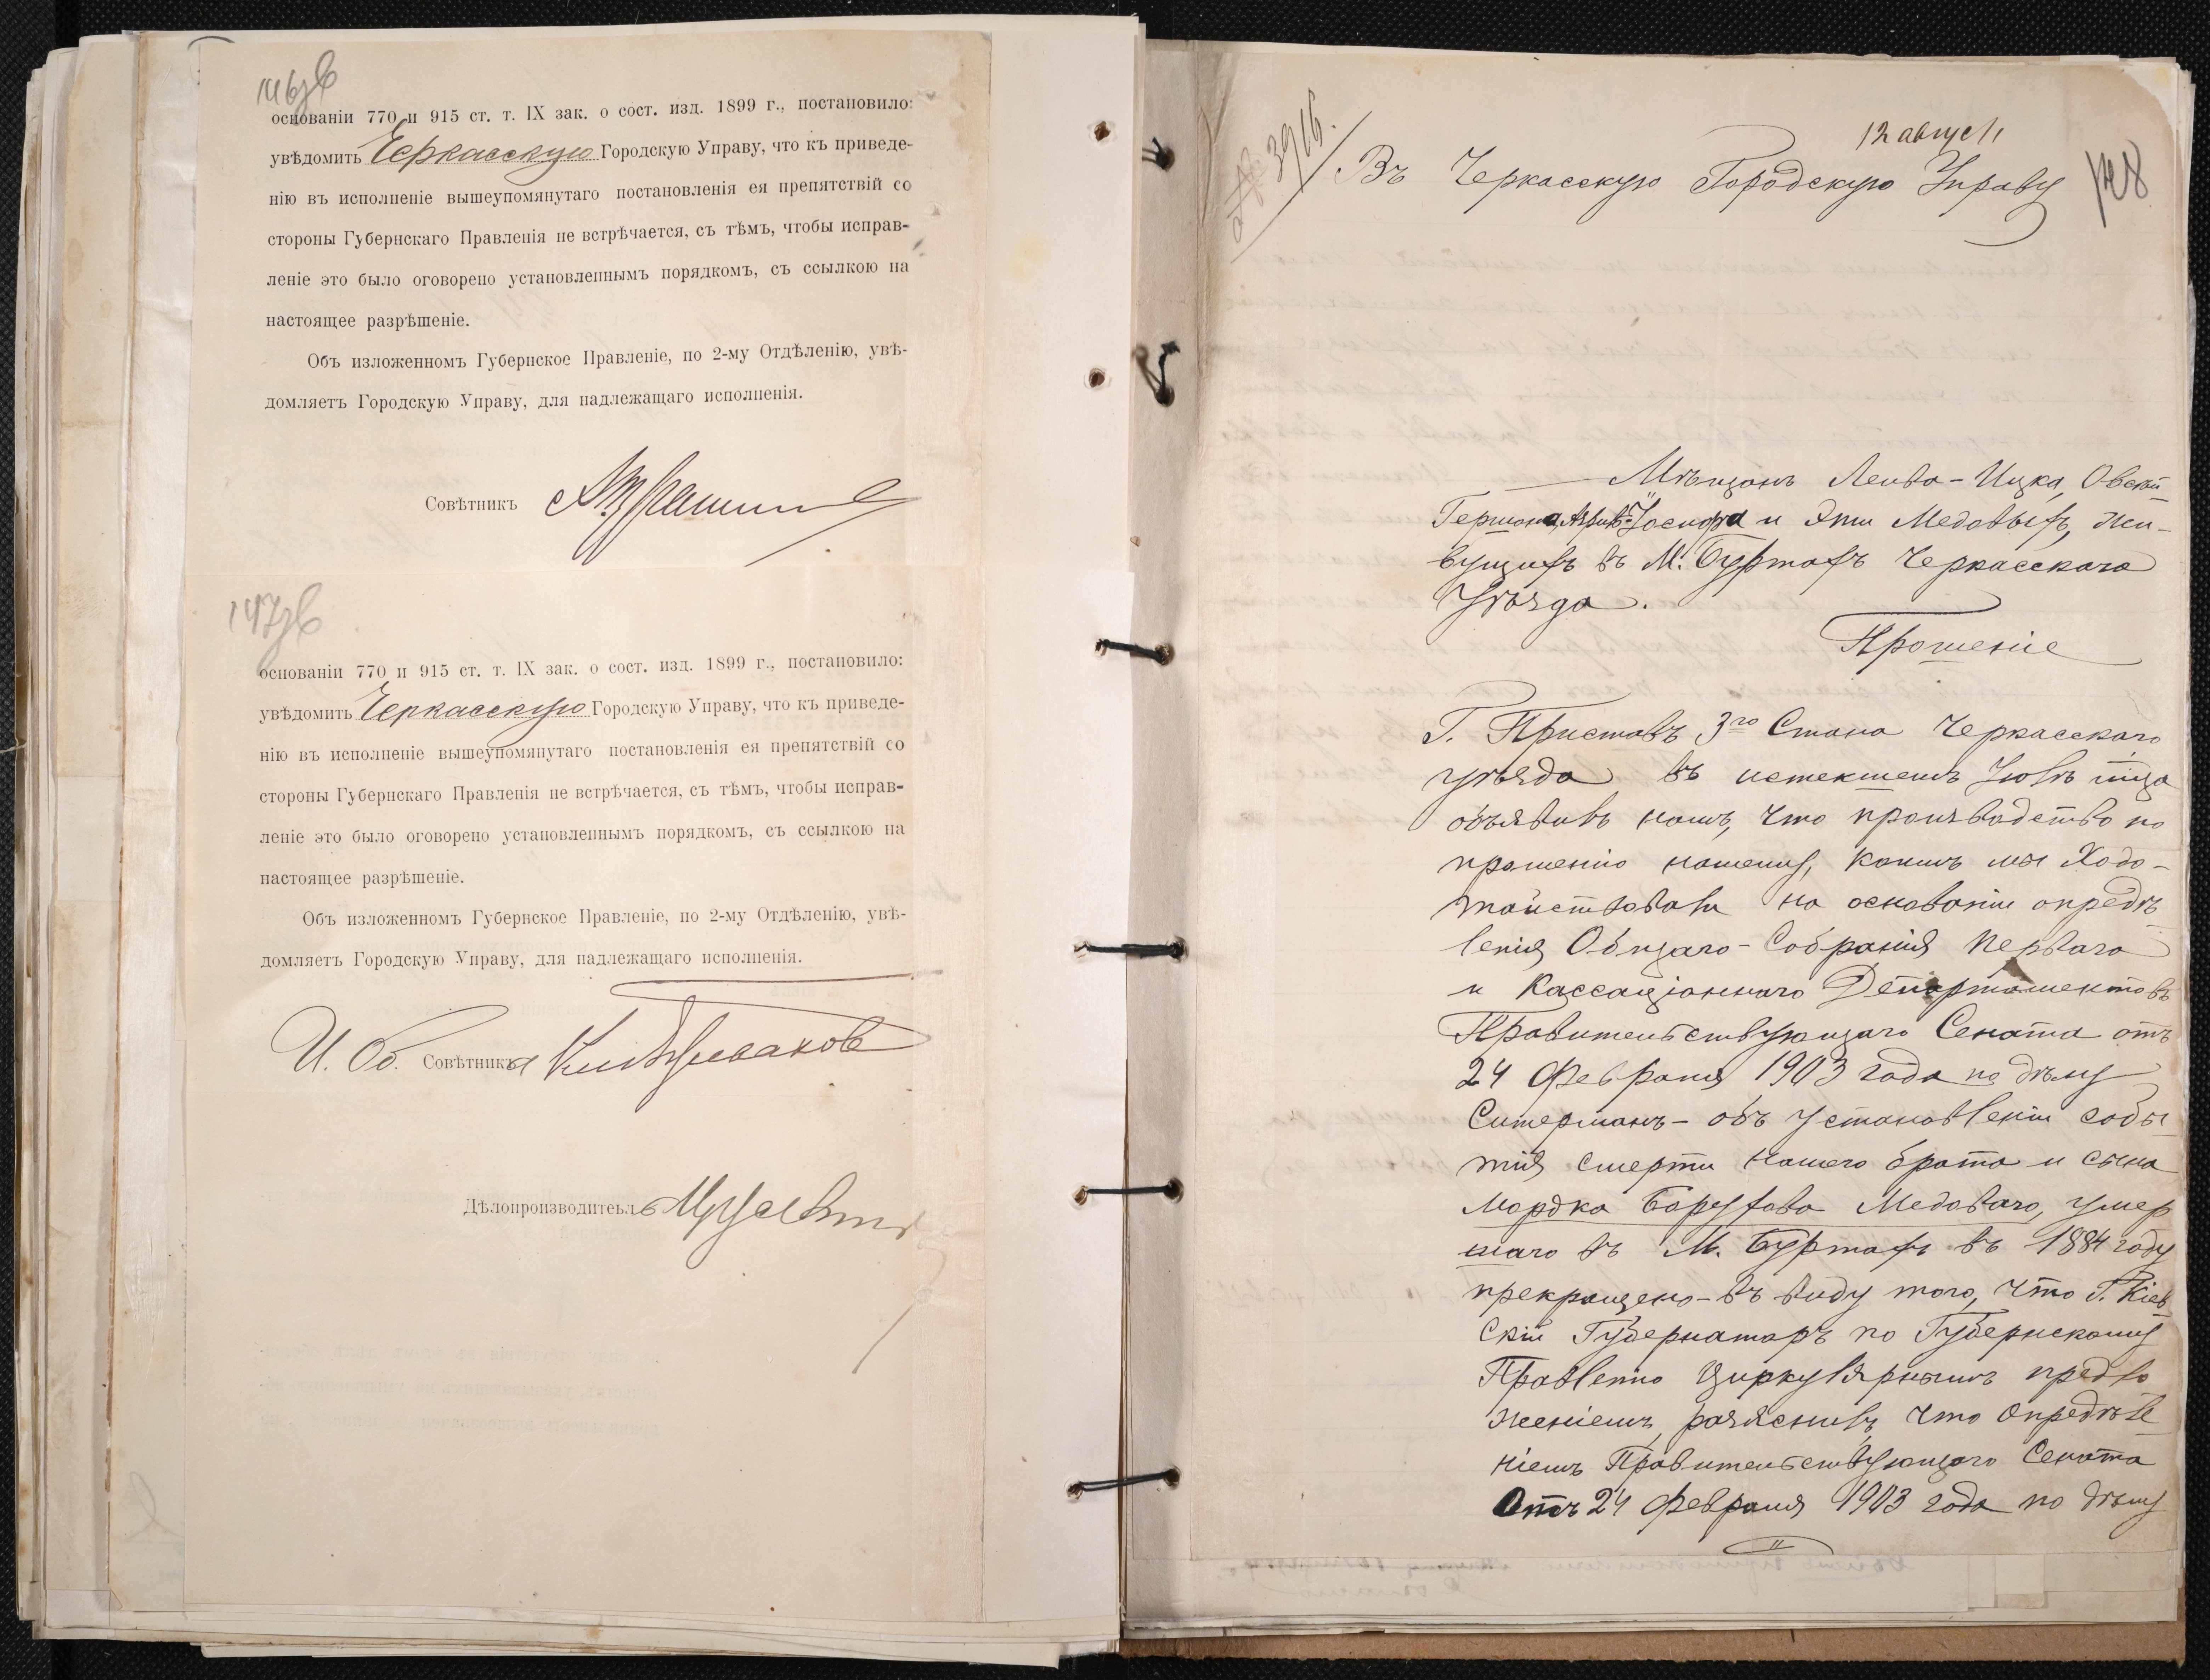 146 об
основаніи 770 и 915 ст. т. IX зак. о сост. изд. 1899 г., постановило:
увѣдомить Черкасскую Городскую Управу, что къ приведе-
нію въ исполненіе вышеупомянутаго постановленія ея препятствій со
стороны Губернскаго Правленія не встрѣчается, съ тѣмъ, чтобы исправ-
леніе это было оговорено установленнымъ порядкомъ, съ ссылкою на
настоящее разрѣшеніе.
Объ изложенномъ Губернское Правленіе, по 2-му Отдѣленію, увѣ-
домляетъ Городскую Управу, для надлежащаго исполненія.
Совѣтникъ
147 об
основаніи 770 и 915 ст. т. IX зак. о сост. изд. 1899 г., постановило:
увѣдомить Черкасскую Городскую Управу, что къ приведе-
нію въ исполненіе вышеупомянутаго постановленія ея препятствій со
стороны Губернскаго Правленія не встрѣчается, съ тѣмъ, чтобы исправ-
леніе это было оговорено установленнымъ порядкомъ, съ ссылкою на
настоящее разрѣшеніе.
Объ изложенномъ Губернское Правленіе, по 2-му Отдѣленію, увѣ-
домляетъ Городскую Управу, для надлежащаго исполненія.
И. Об. Совѣтника
Дѣлопроизводитель
3916.
12 август
148
Въ Черкасскую Городскую Управу
Мѣщанъ Лейба-Ицка, Овсей
Германа, Іосифа и Эти Медовыхъ, жи-
вущихъ въ М. Буртахъ Черкасскаго
Уѣзда.
Прошеніе
Г. Приставъ 3го Стана Черкасскаго
уѣзда въ истекшемъ Іюлѣ мца
объявивъ намъ, что производство по
прошенію нашему, коимъ мы Хода-
тайствовали на основаніи опредѣ
ленія Общаго-Собранія Перваго
и Кассаціоннаго Департаментовъ
Правительствующаго Сената отъ
24 Февраля 1903 года по дѣлу
Ситерманъ - объ установленіи собы-
тія смерти нашего брата и сына
Мордка Барухова Медоваго, умер
шаго въ М. Буртахъ въ 1884 году
прекращено - въ виду того, что Г. Кіев
скій Губернаторъ по Губернскому
Правленію Циркулярнымъ предло
женіемъ, разъяснивъ, что опредѣле
ніемъ Правительствующаго Сената
Отъ 24 Февраля 1903 года по дѣлу